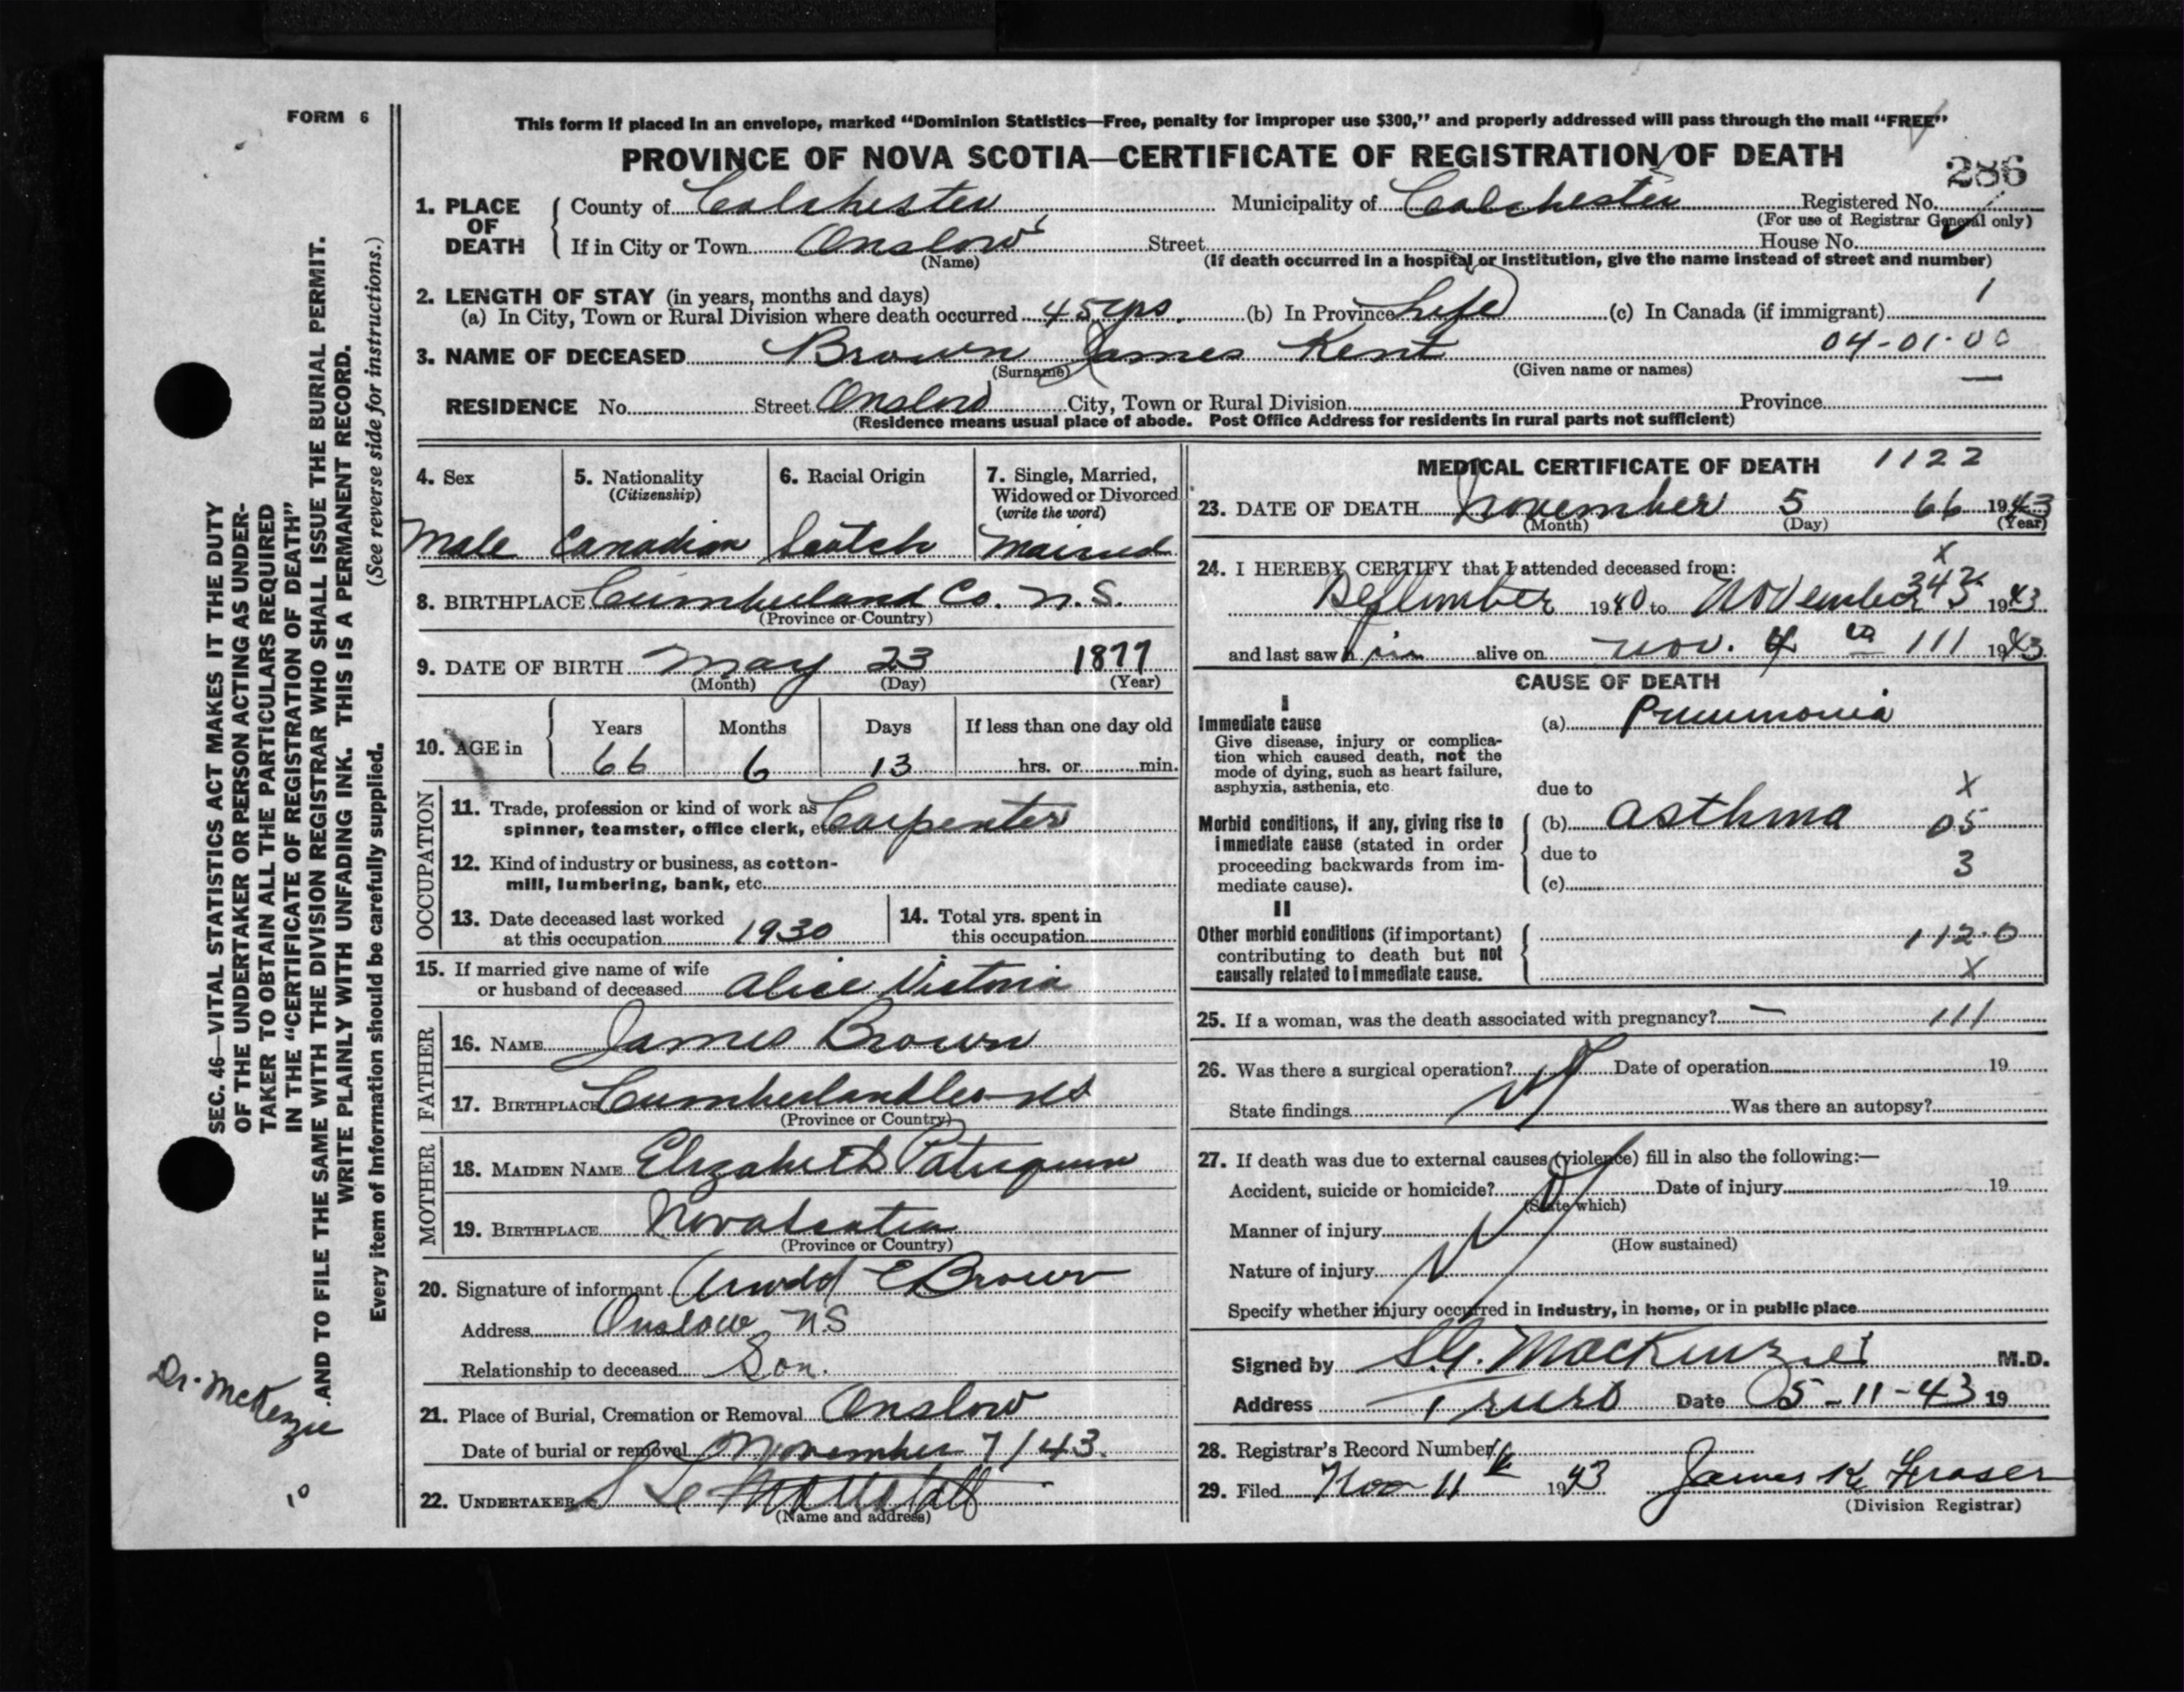 FORM 6
This form if placed in an envelope, marked “Dominion Statistics—Free, penalty for improper use $300,” and properly addressed will pass through the mail “FREE”
PROVINCE OF NOVA SCOTIA—CERTIFICATE OF REGISTRATION OF DEATH
286
1. PLACE OF DEATH { County of Colchester Municipality of Colchester Registered No.
(For use of Registrar General only)
If in City or Town Onslow Street House No.
(Name) (If death occurred in a hospital or institution, give the name instead of street and number)
2. LENGTH OF STAY (in years, months and days)
(a) In City, Town or Rural Division where death occurred 45 yrs. (b) In Province Life (c) In Canada (if immigrant) 1
3. NAME OF DECEASED Brown James Kent 04-01-00
(Surname) (Given name or names)
RESIDENCE No. Street Onslow City, Town or Rural Division Province
(Residence means usual place of abode. Post Office Address for residents in rural parts not sufficient)
4. Sex 5. Nationality (Citizenship) 6. Racial Origin 7. Single, Married, Widowed or Divorced (write the word)
Male Canadian Scotch Married
8. BIRTHPLACE Cumberland Co. N.S.
(Province or Country)
9. DATE OF BIRTH May 23 1877
(Month) (Day) (Year)
10. AGE in { Years Months Days If less than one day old
66 6 13 hrs. or min.
OCCUPATION
11. Trade, profession or kind of work as
spinner, teamster, office clerk, etc. Carpenter
12. Kind of industry or business, as cotton-
mill, lumbering, bank, etc.
13. Date deceased last worked
at this occupation 1930
14. Total yrs. spent in
this occupation
15. If married give name of wife
or husband of deceased Alice Victoria
FATHER
16. NAME James Brown
17. BIRTHPLACE Cumberland Co NS
(Province or Country)
MOTHER
18. MAIDEN NAME Elizabeth Patriquin
19. BIRTHPLACE Nova Scotia
(Province or Country)
20. Signature of informant Arnold E Brown
Address Onslow NS
Relationship to deceased Son.
21. Place of Burial, Cremation or Removal Onslow
Date of burial or removal November 7/43.
22. UNDERTAKER
(Name and address)
MEDICAL CERTIFICATE OF DEATH 1122
23. DATE OF DEATH November 5 66 1943
(Month) (Day) (Year)
24. I HEREBY CERTIFY that I attended deceased from: x
1940 to November 1943
and last saw h im alive on Nov. 4 111 1943
CAUSE OF DEATH
I
Immediate cause (a) Pneumonia
Give disease, injury or complica-
tion which caused death, not the
mode of dying, such as heart failure,
asphyxia, asthenia, etc.
due to X
Morbid conditions, if any, giving rise to
immediate cause (stated in order
proceeding backwards from im-
mediate cause).
(b) Asthma 05
due to 3
(c)
II
Other morbid conditions (if important)
contributing to death but not
causally related to immediate cause.
112.0
X
25. If a woman, was the death associated with pregnancy? — 111
26. Was there a surgical operation? Date of operation 19
State findings Was there an autopsy?
27. If death was due to external causes (violence) fill in also the following:—
Accident, suicide or homicide? Date of injury 19
(State which)
Manner of injury
(How sustained)
Nature of injury
Specify whether injury occurred in industry, in home, or in public place
Signed by S.G. MacKenzie M.D.
Address Truro Date 5-11-43 19
28. Registrar's Record Number
29. Filed Nov 11th 1943 James K. Fraser
(Division Registrar)
SEC. 46—VITAL STATISTICS ACT MAKES IT THE DUTY
OF THE UNDERTAKER OR PERSON ACTING AS UNDER-
TAKER TO OBTAIN ALL THE PARTICULARS REQUIRED
IN THE “CERTIFICATE OF REGISTRATION OF DEATH”
AND TO FILE THE SAME WITH THE DIVISION REGISTRAR WHO SHALL ISSUE THE BURIAL PERMIT.
WRITE PLAINLY WITH UNFADING INK. THIS IS A PERMANENT RECORD.
Every item of information should be carefully supplied. (See reverse side for instructions.)
Dr. McKenzie
10